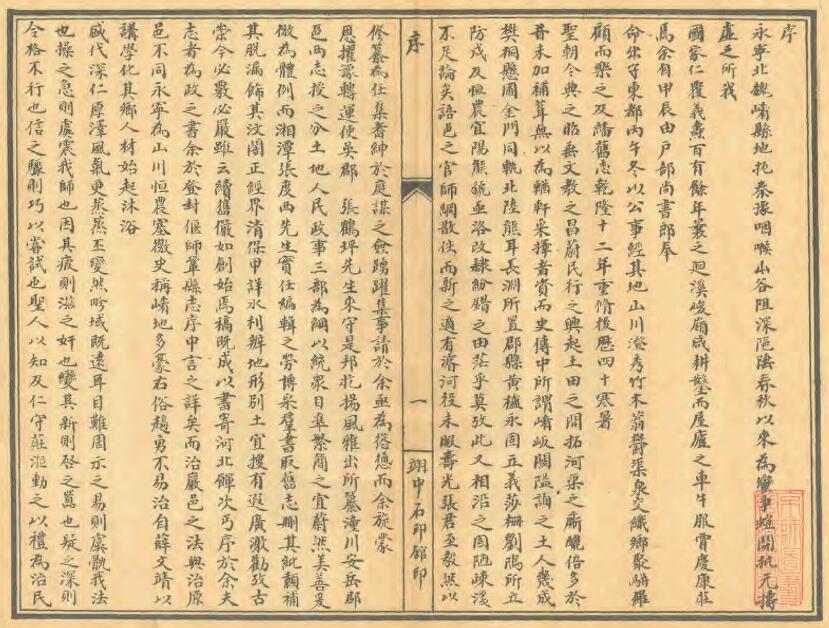 序
永寧北魏崤縣地扼秦豫咽喉山谷阻深阨隘春秋以來為
虛之所我
國家仁覆義燾百有餘年曩之迴溪峻嶺咸耕鑿而屋廬之車牛服賈慶康莊
焉余自甲辰由戶部尚書郎奉
命出守東都丙午冬以公事經其地山川澄秀竹木蓊鬱渠泉交織鄉聚駢羅
顧而樂之及繙舊志乾隆十二年重脩後歷四十寒暑
聖朝令典之昭垂文教之昌蔚民行之興起土田之開拓河渠之斸釃倍多於
昔未加補葺無以為輶軒采擇者資而史傳中所謂崤岅闕隘詢之土人幾成
樊桐懸圃金門同軌北陸熊耳長淵所置郡縣黃櫨永固立義莎柵劉隝所立
防戍及恒農宜陽熊號亟洛改隸紛錯之由茫乎莫攷此又相沿之固陋竦漏
不足論矣語邑之官師網散佚而新之適有濬河役未暇壽光張君至毅然以
序
一
翊中石印館印
修纂為任集耆紳於庭謀之僉踴躍集事請於余亟為慫恿而余旋蒙
恩擢豫轉運使吳郡 張鶴坪先生來守是邦扢揚風雅出所纂潼川安岳郡
邑兩志授之分土地人民政事三部為綱以統眾目準繁簡之宜蔚然美善爰
倣為體例而湘潭張度西先生實任編輯之勞博采羣書取舊志刪其紕纇補
其脫漏飾其汶闇正經界清保甲詳水利辨地形別土宜搜有遐廣激勸攷古
崇今必覈必嚴雖云續舊儼如創始焉稿既成以書寄河北鍕次丐序於余夫
志者為政之書余於登封偃師鞏縣志序中言之詳矣而治嚴邑之法與治原
邑不同永寧為山川恒農塞徼史稱崤地多豪右俗趫勇不易治自薛文靖以
講學化其鄉人材始起沐浴
盛代深仁厚澤風氣更蒸蒸丕變然畛域既遠耳目難周示之易則虞翫我法
也操之急則虞震我師也因其疲則滋之奸也變其新則啓之嚚也疑之深則
令格不行也信之驟則巧以嘗試也聖人以知及仁守莊涖動之以禮為治民